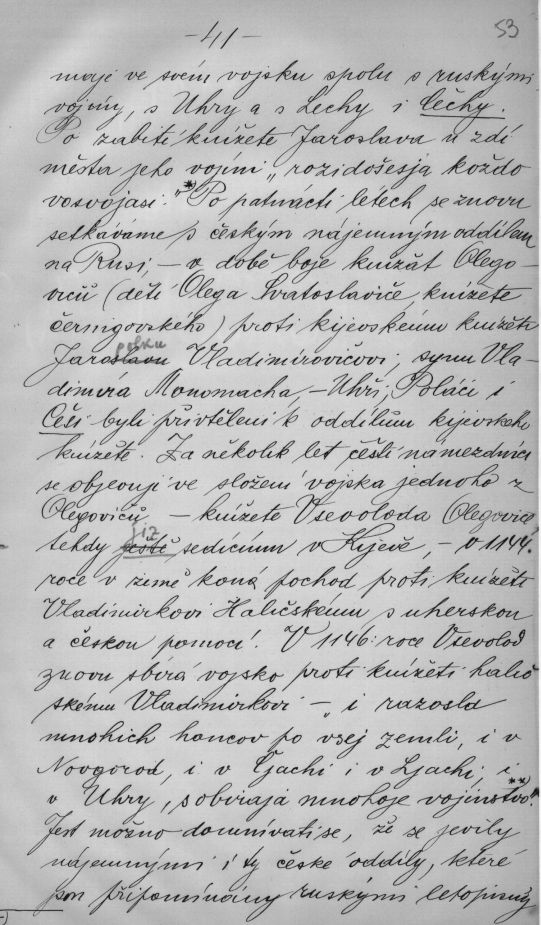 -41-
53
maje ve svém vojsku spolu s ruskými
vojíny, s Uhry a s Lechy i Čechy.
Po zabití knížete Jaroslava u zdí
města jeho vojíni „rozidošesja koždo
vosvojasi."*) Po patnácti létech se znovu
setkáváme s českým nájemným oddílem
na Rusi, – v době boje knížat Olego-
vičů (dětí Olega Svatoslaviče, knížete
černigovského) proti kijevskému knížeti
polku
Jaroslavu Vladimírovičovi, synu Vla-
dimira Monomacha, – Uhři, Poláci i
Češi byli přivtěleni k oddílům kijevskeho
knížete. Za několik let čeští namezdníci
se objevují ve složení vojska jednoho z
Olegovičů, – knížete Vsevoloda Olegoviče
již
tehdy ještě sedícím v Kijevě, – v 1144.
roce v zimě koná pochod proti knížeti
Vladimirkovi Haličskému s uherskou
a českou pomocí. V 1146: roce Vsevolod
znovu sbírá vojsko proti knížeti halič
skému Vladimirkovi – „i razosla
mnohich honcov po vsej zemli, i v
Novgorod, i v Čachi i v Ljachi, i
v Uhry, sobiraja mnohoje vojinstvo."**)
Jest možno domnívati se, že se jevily
nájemnými i ty české oddíly, které
jsou připomínány ruskými letopisný